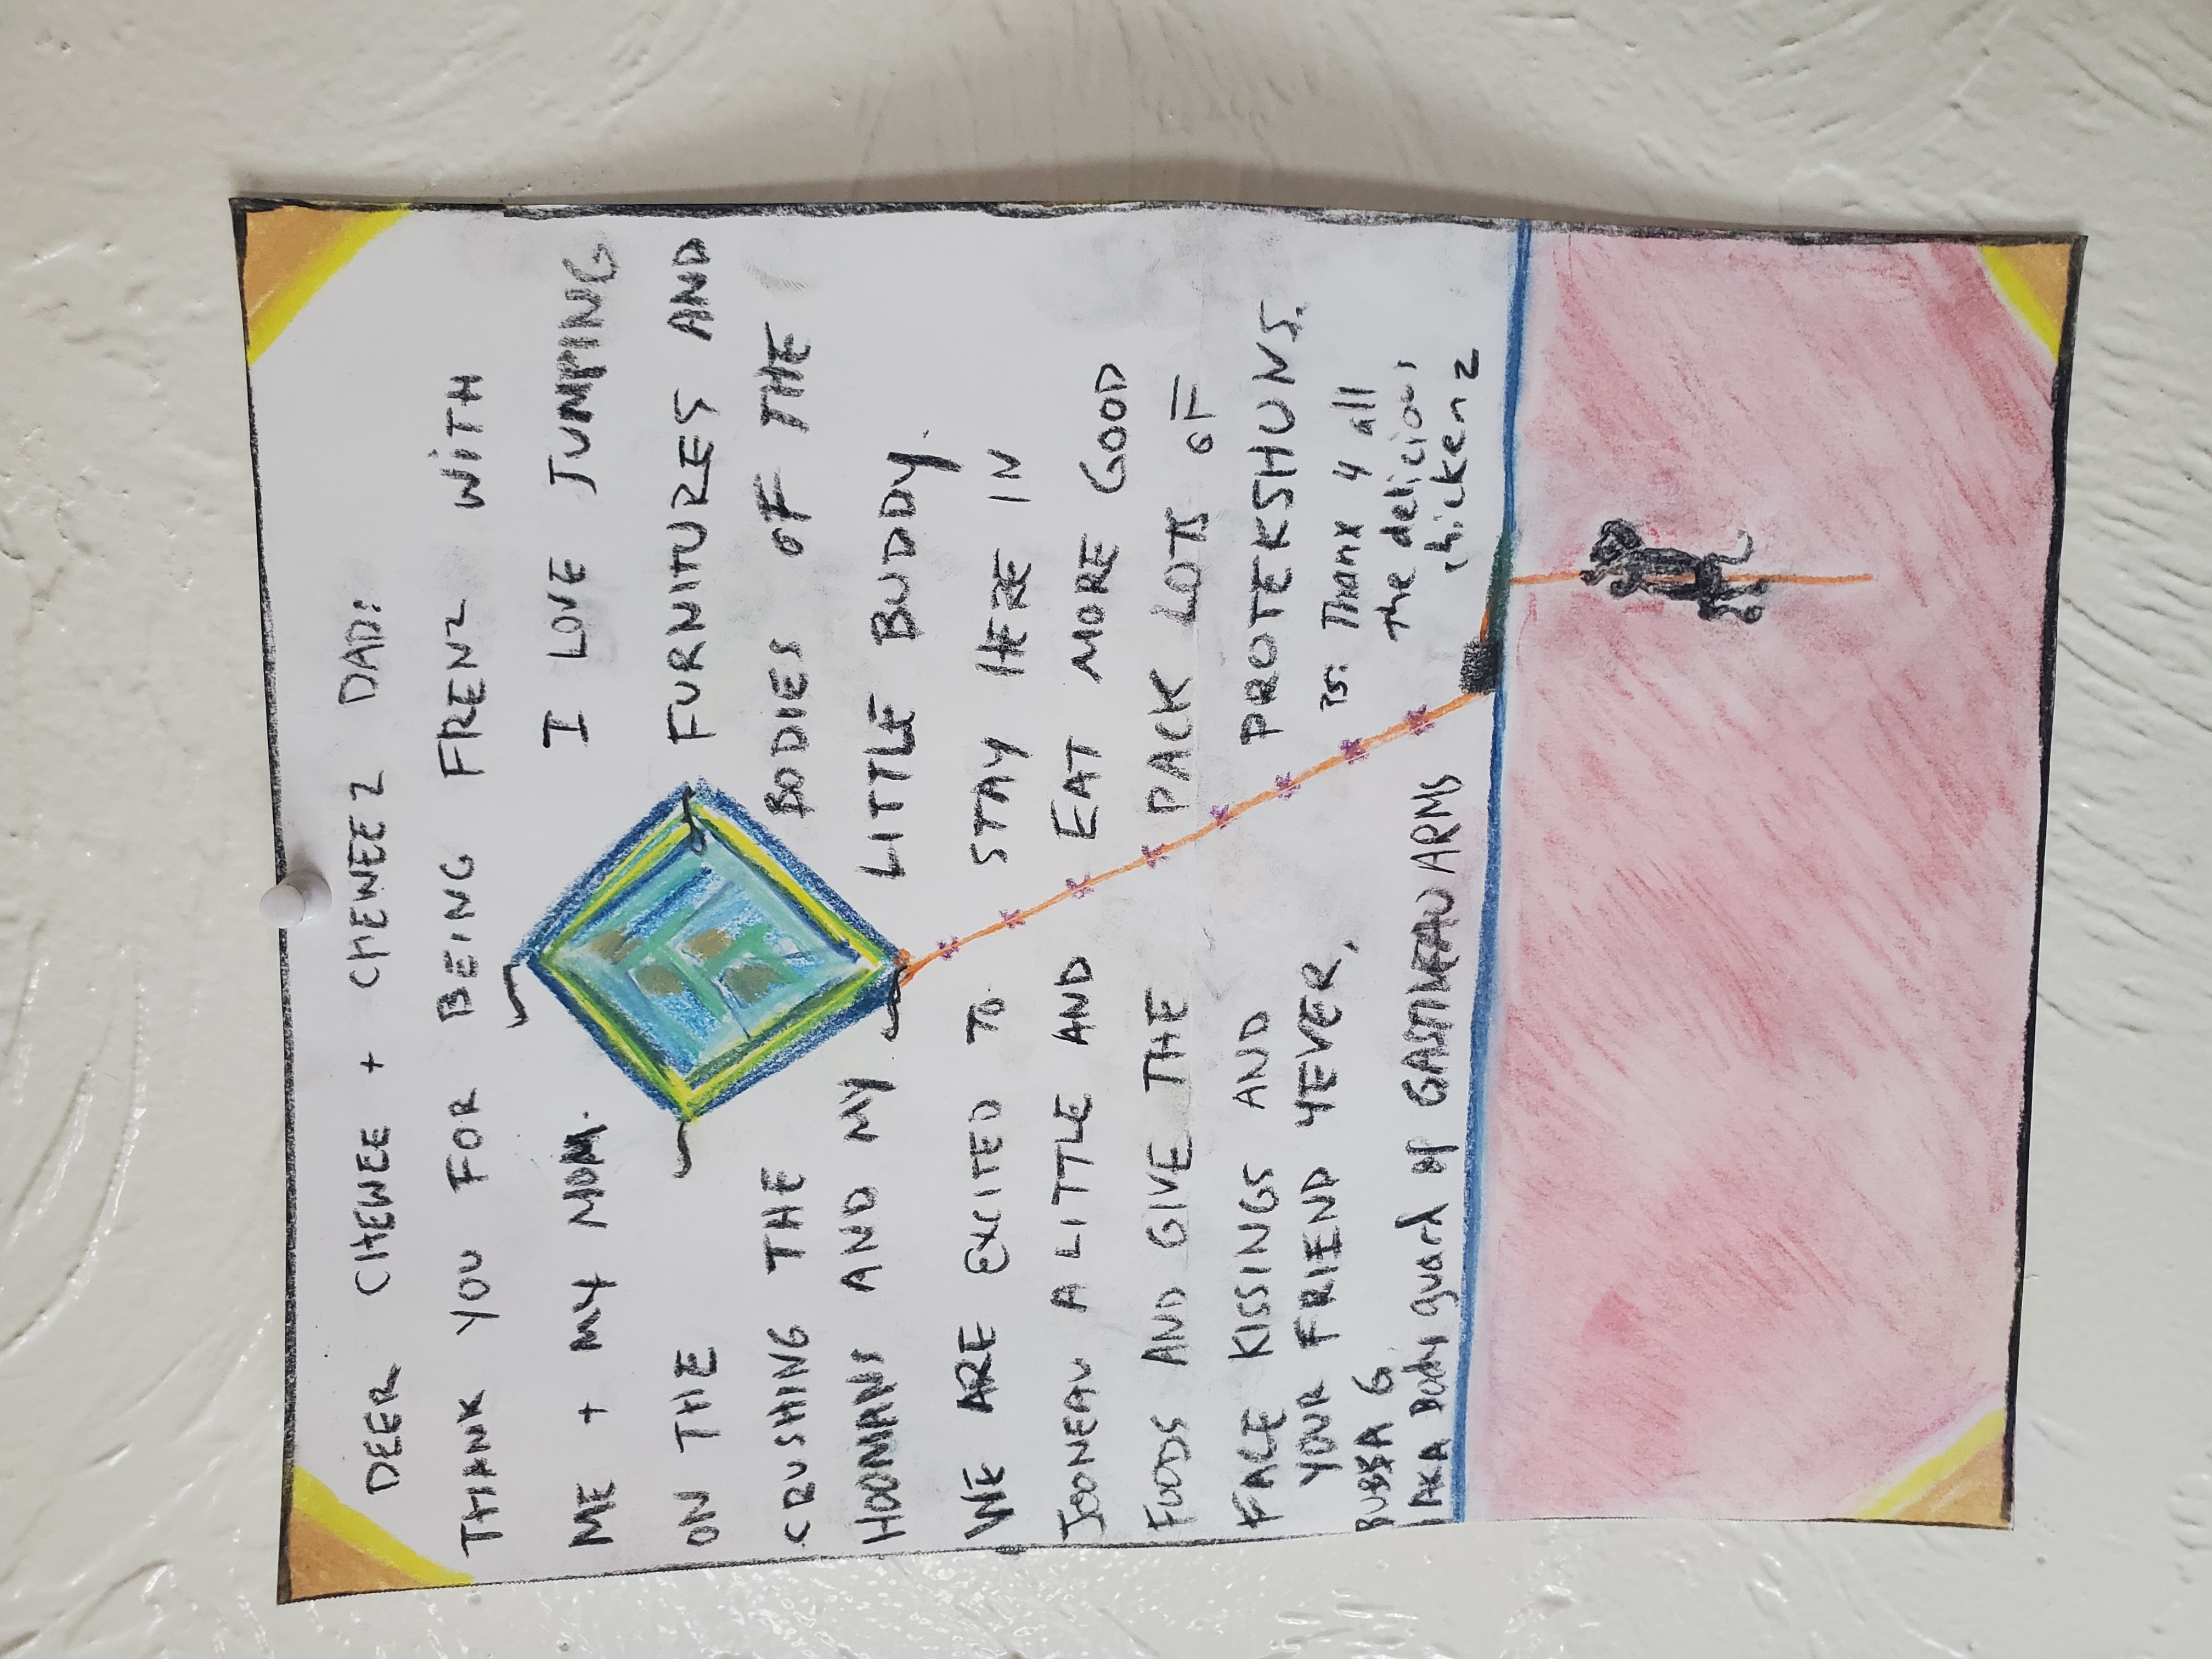 DEER CHEWEE + CHEWEEZ DAD:
THANK YOU FOR BEING FRENZ WITH
ME + MY MOM. I LOVE JUMPING
ON THE FURNITURES AND
CRUSHING THE BODIES OF THE
HOOMANS AND MY LITTLE BUDDY.
WE ARE EXCITED TO STAY HERE IN
JOONEAU A LITTLE AND EAT MORE GOOD
FOODS AND GIVE THE PACK LOTS OF
FACE KISSINGS AND PROTEKSHUNS.
YOUR FRIEND 4EVER,
BUBBA G
AKA Body guard of GASTINEAU ARMS
PS: Thanx 4 all
the delicious
chickenz